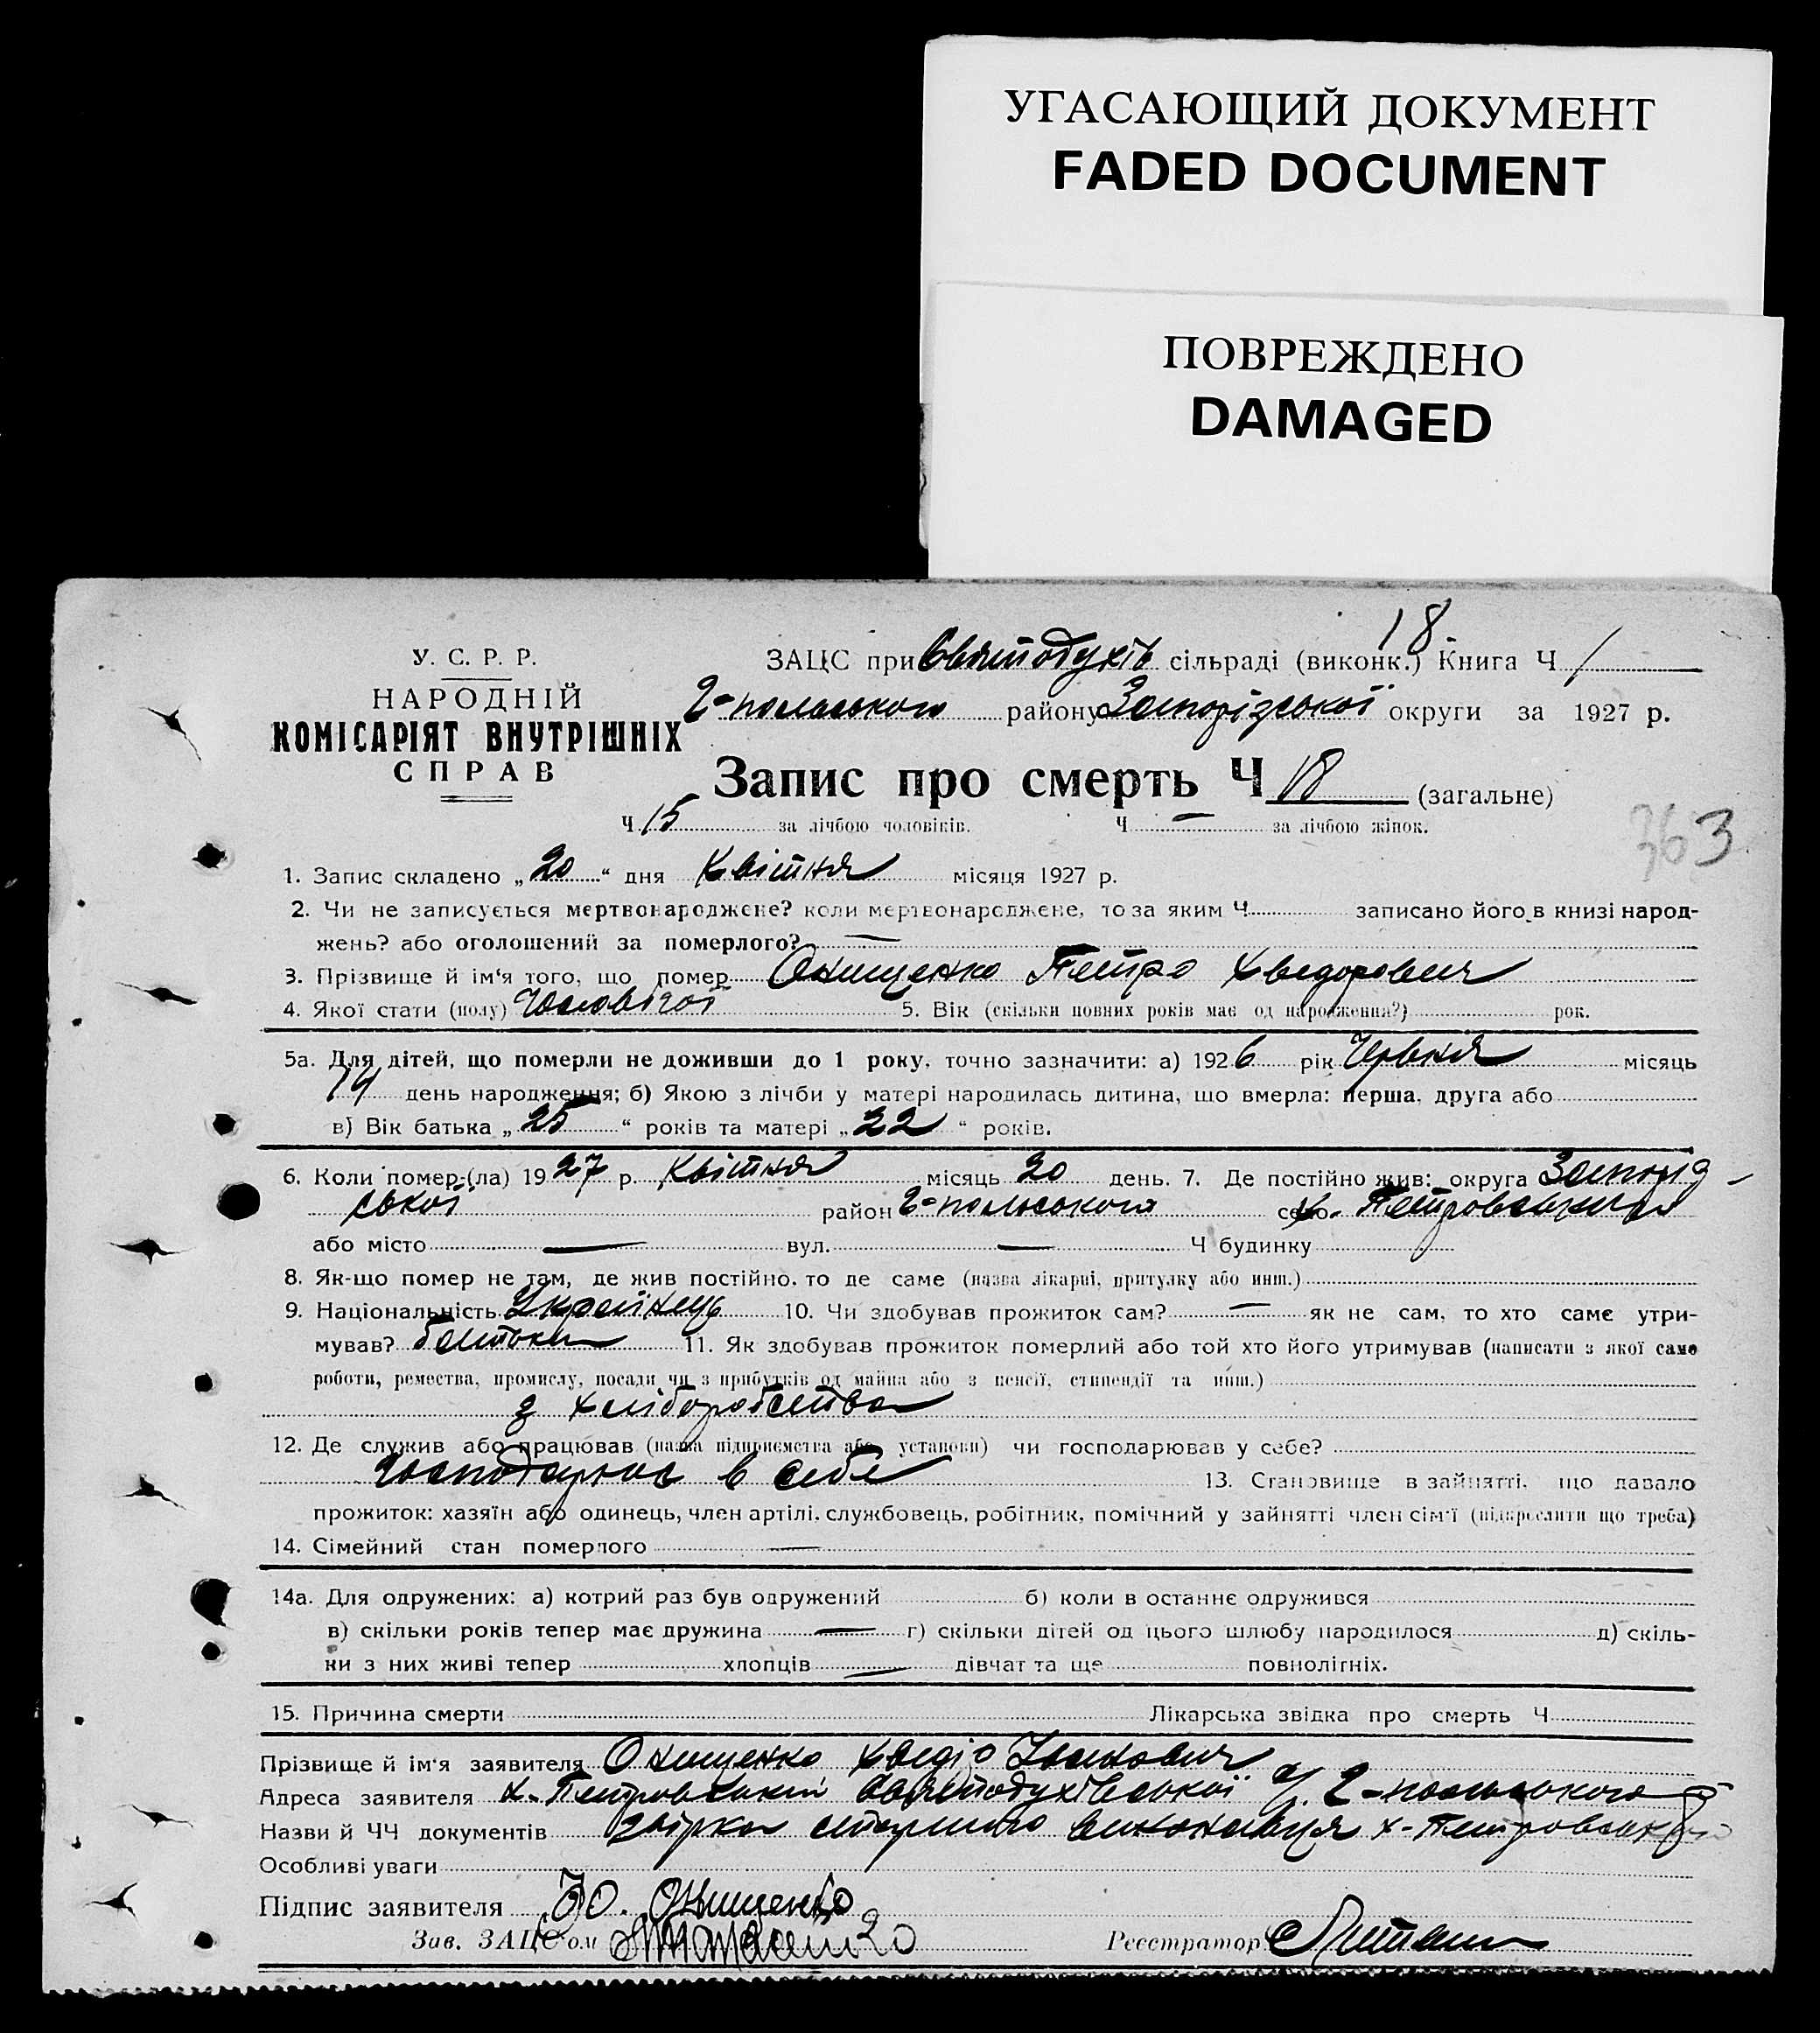 УГАСАЮЩИЙ ДОКУМЕНТ
FADED DOCUMENT
ПОВРЕЖДЕНО
DAMAGED
18.
У. С. Р. Р.
НАРОДНІЙ
КОМІСАРІЯТ ВНУТРІШНІХ
СПРАВ
ЗАЦС при Святодухів сільраді (виконк.) Книга Ч 1
г-польського району Запорізської округи за 1927 р.
Запис про смерть Ч 18 (загальне)
Ч 15 за лічбою чоловіків. Ч — за лічбою жінок.
363
1. Запис складено „20“ дня Квітня місяця 1927 р.
2. Чи не записується мертвонароджене? коли мертвонароджене, то за яким Ч записано його в книзі народ-
жень? або оголошений за померлого? —
3. Прізвище й ім‘я того, що помер Онищенко Петро Хведорович
4. Якої стати (полу) Чоловічої 5. Вік (скільки повних років має од народження?) рок.
5а. Для дітей, що померли не доживши до 1 року, точно зазначити: а) 1926 рік Червня місяць
14 день народження; б) Якою з лічби у матері народилась дитина, що вмерла: перша, друга або
в) Вік батька „25“ років та матері „22“ років.
6. Коли помер-(ла) 1927 р. Квітня місяць 20 день. 7. Де постійно жив: округа Запорід-
ської район г-польського х. Петровський
або місто — вул. — Ч будинку
8. Як-що помер не там, де жив постійно, то де саме (назва лікарні, притулку або инш.)
9. Національність Українець 10. Чи здобував прожиток сам? — як не сам, то хто саме утри-
мував? батьки 11. Як здобував прожиток померлий або той хто його утримував (написати з якої саме
роботи, ремества, промислу, посади чи з прибутків од майна або з пенсії, стипендії та инш.)
з хліборобства
12. Де служив або працював (назва підприємства або установи) чи господарював у себе?
господарює в себе 13. Становище в зайнятті, що давало
прожиток: хазяїн або одинець, член артілі, службовець, робітник, помічний у зайнятті член сім‘ї (підкреслити що треба)
14. Сімейний стан померлого —
14а. Для одружених: а) котрий раз був одружений б) коли в останнє одружився
в) скільки років тепер має дружина — г) скільки дітей од цього шлюбу народилося д) скіль-
ки з них живі тепер хлопців — дівчат та ще повнолітніх.
15. Причина смерти Лікарська звідка про смерть Ч
Прізвище й ім‘я заявителя Онищенко Хведір Іванович
Адреса заявителя х. Петровський Святодухівської г-польського
Назви й ЧЧ документів старшого виконавця х-Петровський
Особливі уваги
Підпис заявителя Онищенко
Зав. ЗАЦС‘ом
Реєстратор